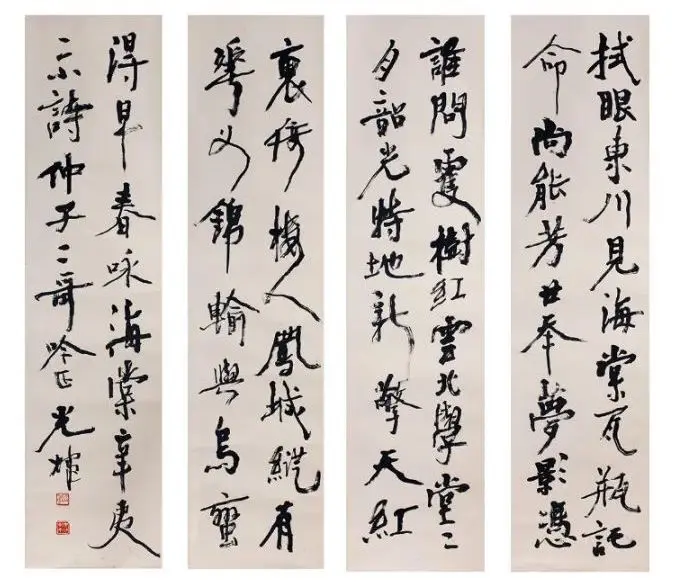 拭眼東川見海棠瓦瓶託
命尚能芳廿年夢影憑
誰問樹紅雲北學堂二
月韶光特地新擎天紅
裏梅人鳳城縱有
華如錦輸與烏蠻
得早春詠海棠辛夷
示詩仲子二哥吟正光煒